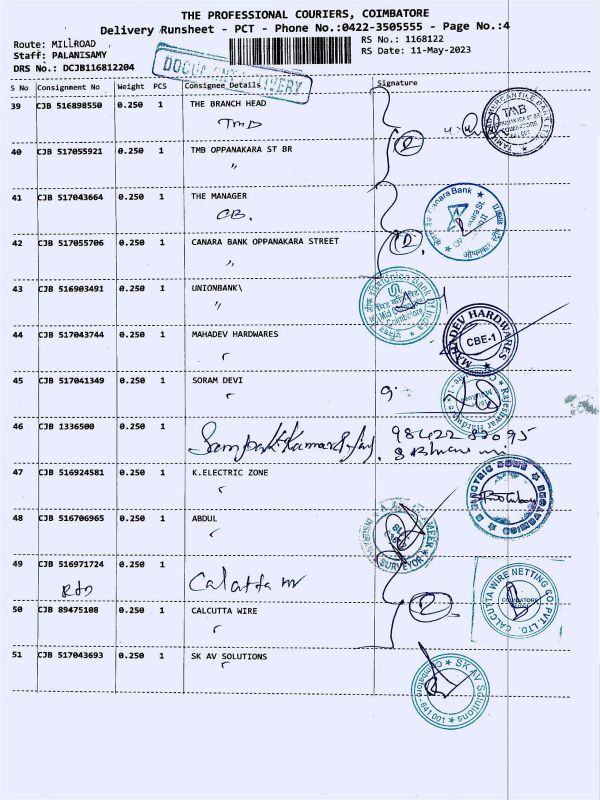 THE PROFESSIONAL COURIERS, COIMBATORE
Delivery Runsheet - PCT - Phone No.:0422-3505555 - Page No.:4
Route: MILLROAD
RS No.: 1168122
Staff: PALANISAMY
RS Date: 11-May-2023
DRS No.: DCJB116812204
DOCUMENT DELIVERY
S No Consignment No Weight PCS Consignee Details Signature
39 CJB 516898550 0.250 1 THE BRANCH HEAD
TMB
TMB
40 CJB 517055921 0.250 1 TMB OPPANAKARA ST BR
〃
41 CJB 517043664 0.250 1 THE MANAGER
CB.
Canara Bank
42 CJB 517055706 0.250 1 CANARA BANK OPPANAKARA STREET
〃
43 CJB 516903491 0.250 1 UNIONBANK\
〃
44 CJB 517043744 0.250 1 MAHADEV HARDWARES
MAHADEV HARDWARES
CBE-1
45 CJB 517041349 0.250 1 SORAM DEVI
Rajeshwar Hardware
46 CJB 1336500 0.250 1
47 CJB 516924581 0.250 1 K.ELECTRIC ZONE
48 CJB 516706965 0.250 1 ABDUL
SURVEYOR
49 CJB 516971724 0.250 1
Calcutta
50 CJB 89475108 0.250 1 CALCUTTA WIRE
CALCUTTA WIRE NETTING CO. PVT. LTD.
51 CJB 517043693 0.250 1 SK AV SOLUTIONS
SK AV Solutions
Coimbatore - 641 001